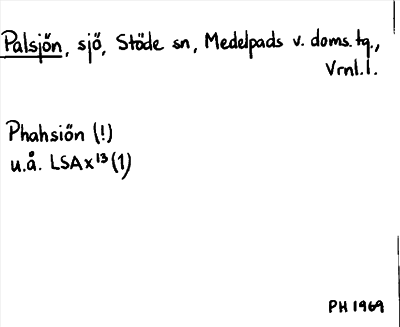 Palsjön, sjö, Stöde sn, Medelpads v. doms.tg.,
Vrnl.l.
Phahsiön (!)
u.å. LSAX¹³(1)
PH 1969